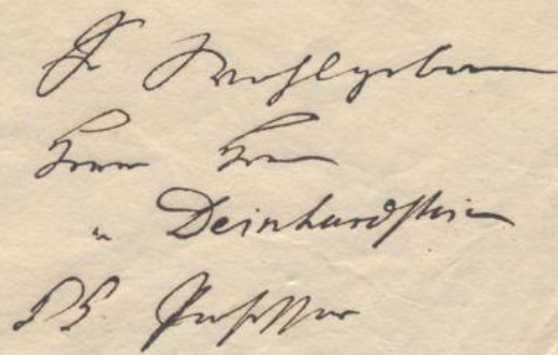 Sr Wohlgeboren
Herrn Herrn
" Deinhardstein
Professor